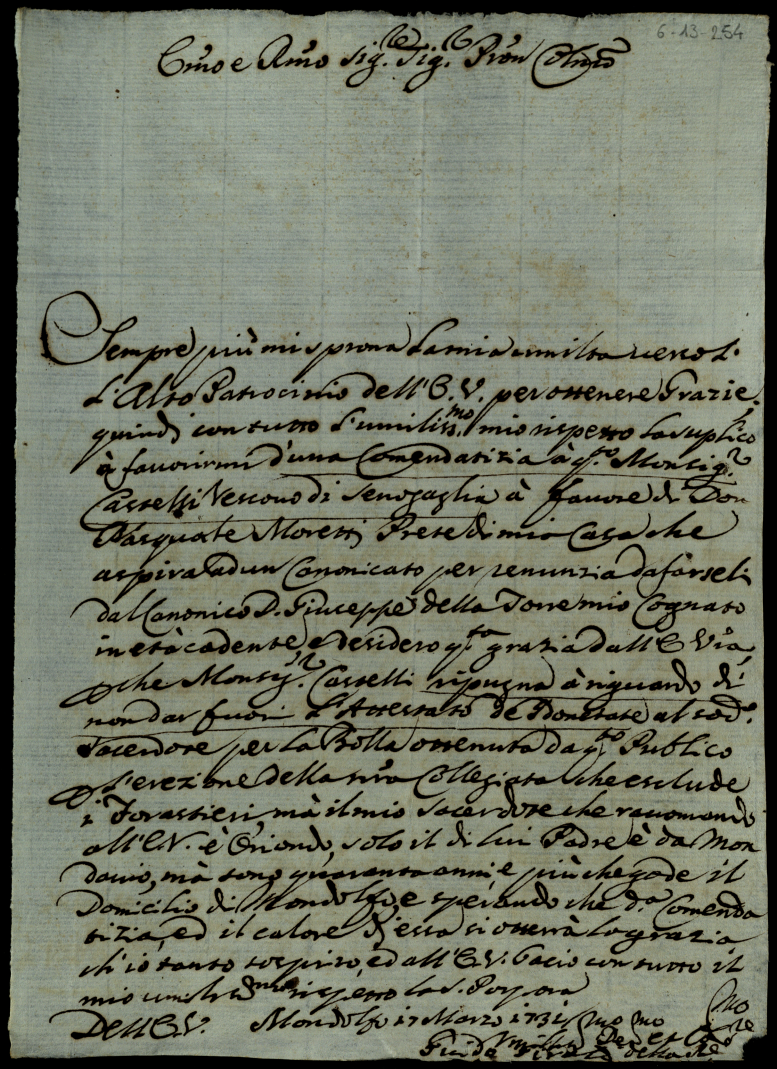 6-13-254
Emo e Rmo Sig.re Sig.r Pron Colmo
Sempre più mi sprona la mia umiltà verso l'
L'Alto Patrocinio dell'E.V. per ottenere Grazie,
quindi con tutto l'umiliss.mo mio rispetto la suplico
à favorirmi d'una Comendatizia à q.to Monsig.r
Castelli Vescovo di Senogaglia à favore di Don
Pasquale Moretti Prete di mia Casa che
aspira ad un Canonicato per renunzia da farseli
dal Canonico D. Giuseppe della Torre mio Cognato
in età cadente, e desidero q.ta grazia dall'E.Vra,
che Monsig.r Castelli ripugna à riguardo di
non dar fuori L'Attestato de Bonitate al sod.o
Sacerdote per la Bolla ottenuta da q.to Publico
p l'erezione della nra Collegiata che esclude
i Forastieri, mà il mio Sacerdote che racomando
all'E.V. è Oriondo, solo il di lui Padre è da Mon
davio, mà sono quaranta anni, e più che gode il
Domicilio di Mondolfo, e sperando che d.a Comenda
tizia, ed il calore d'essa si otterrà la grazia
ch'io tanto sospiro, ed all'E.V. bacio con tutto il
mio umilissmo rispetto la S. Porpora
Dell'E.V. Mondolfo 17 Marzo 1731